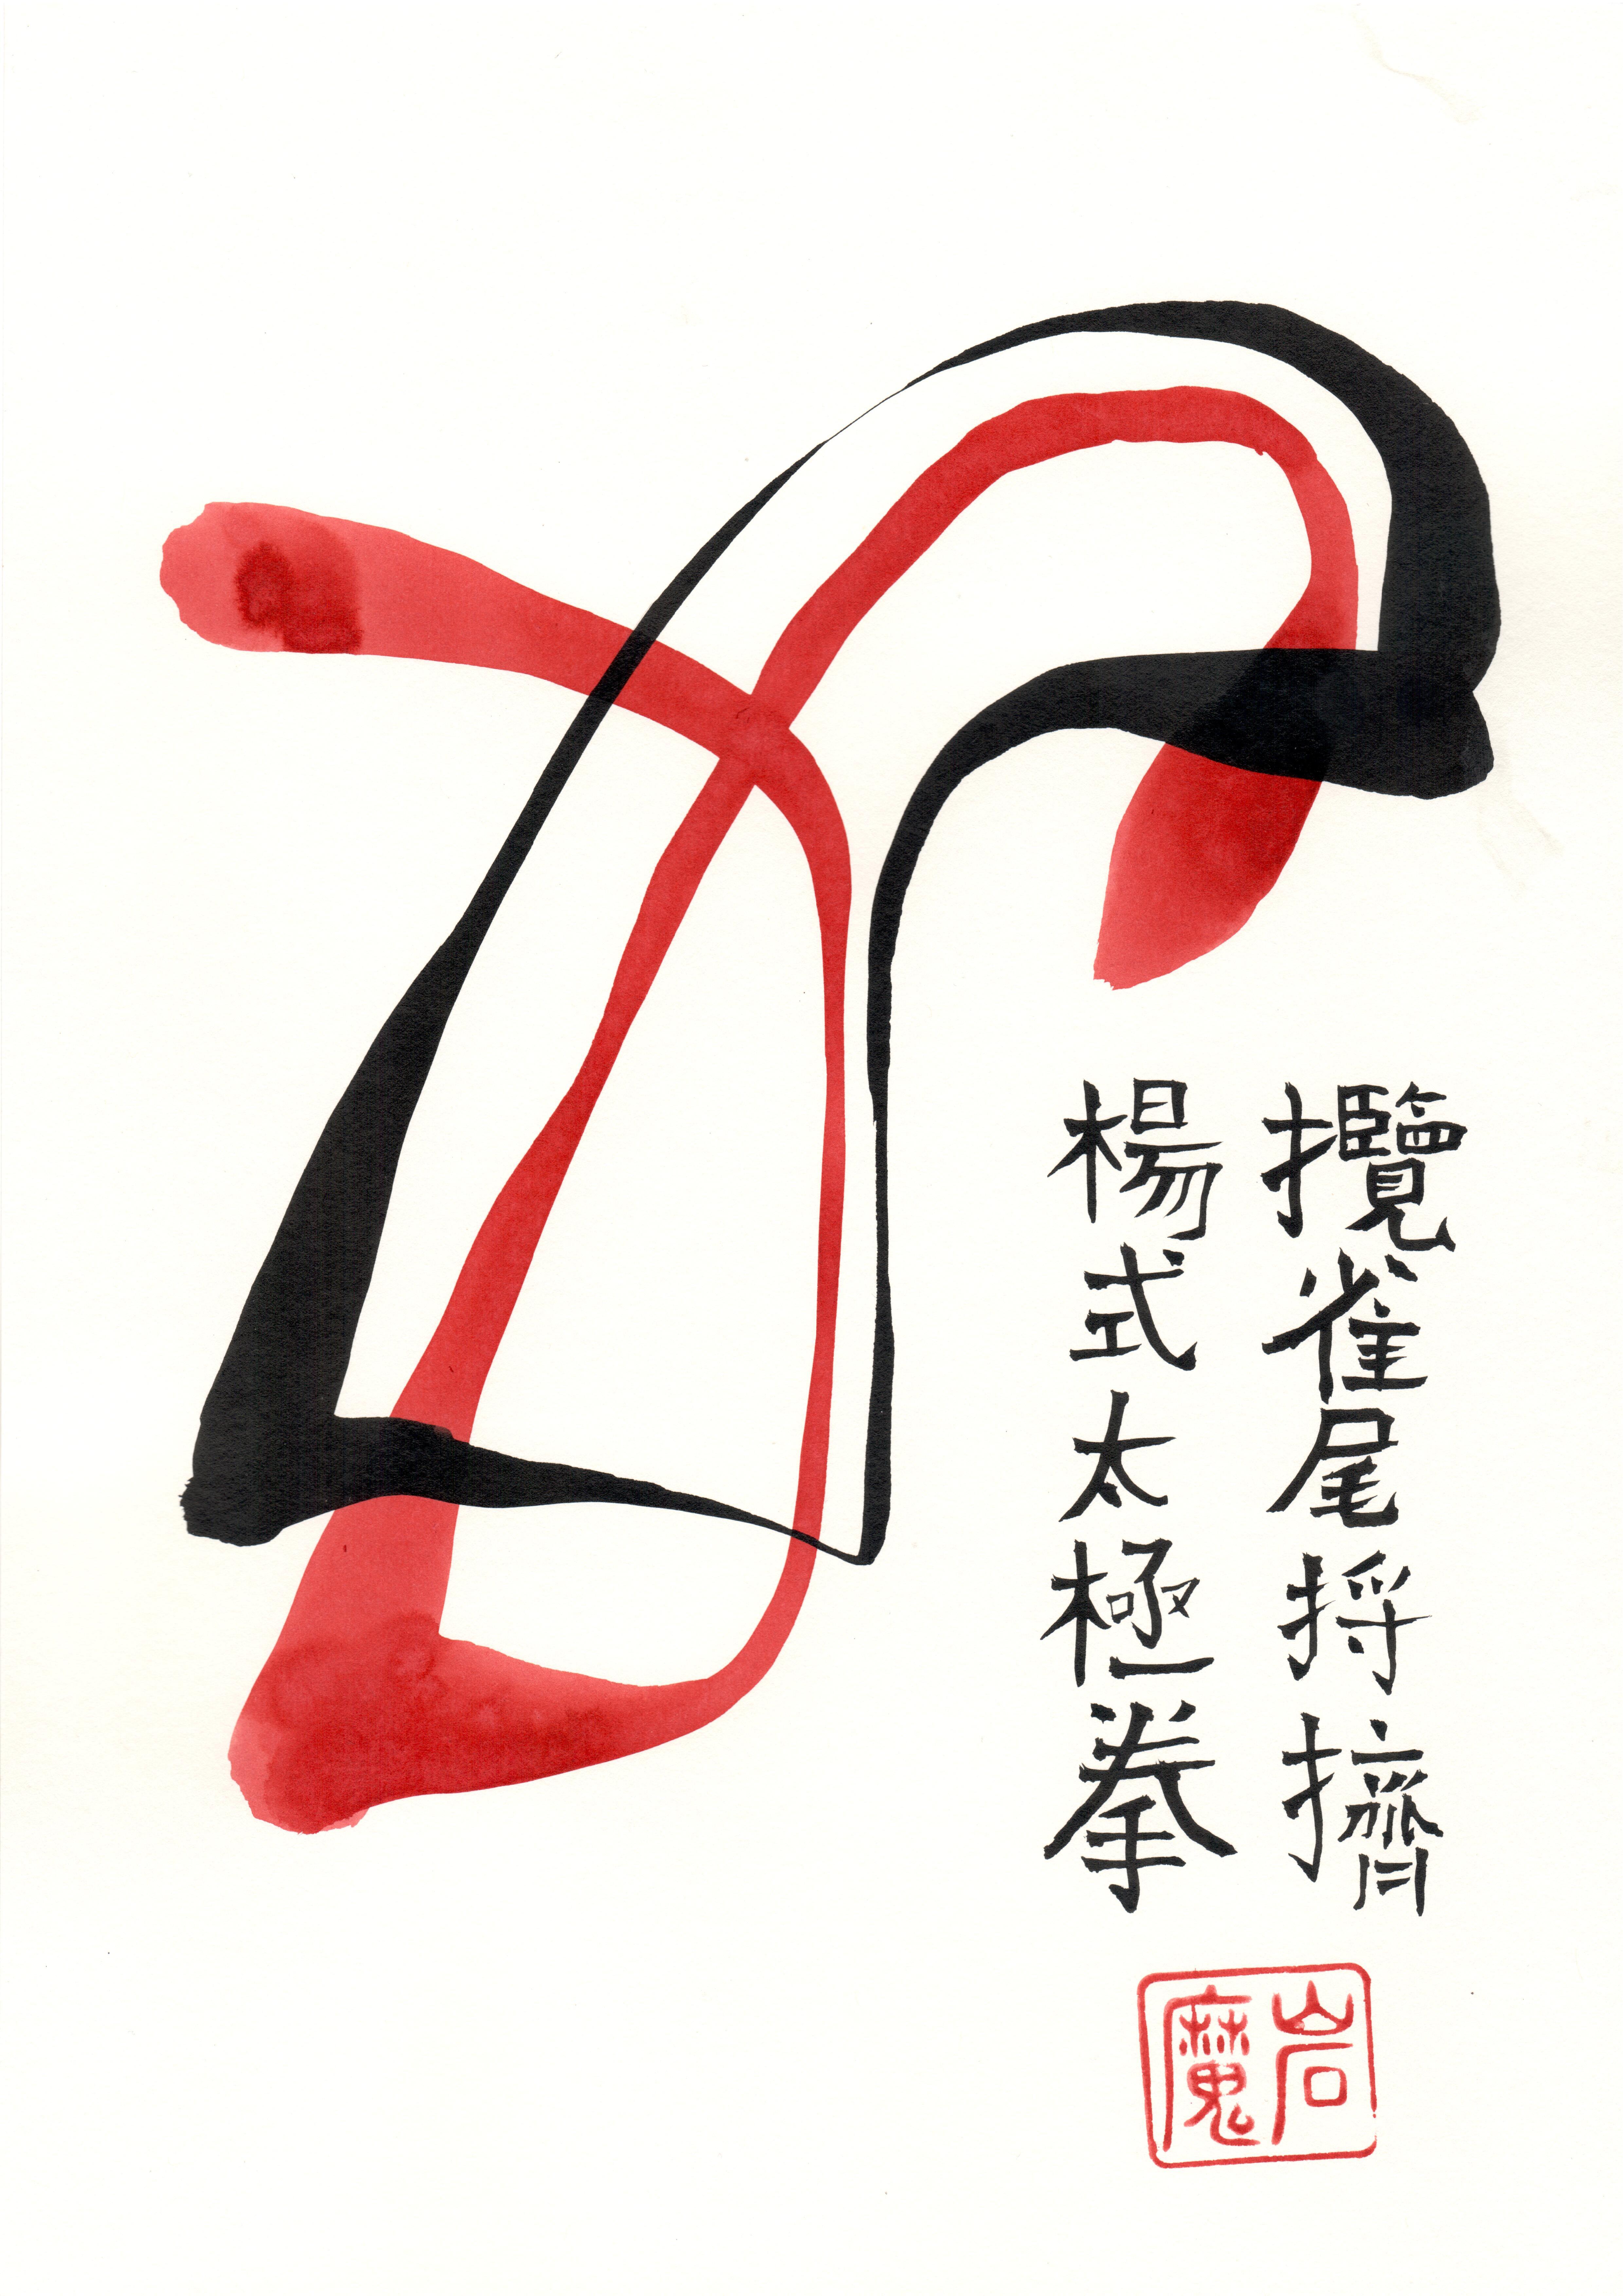 攬雀尾捋擠
楊式太極拳
岩魔